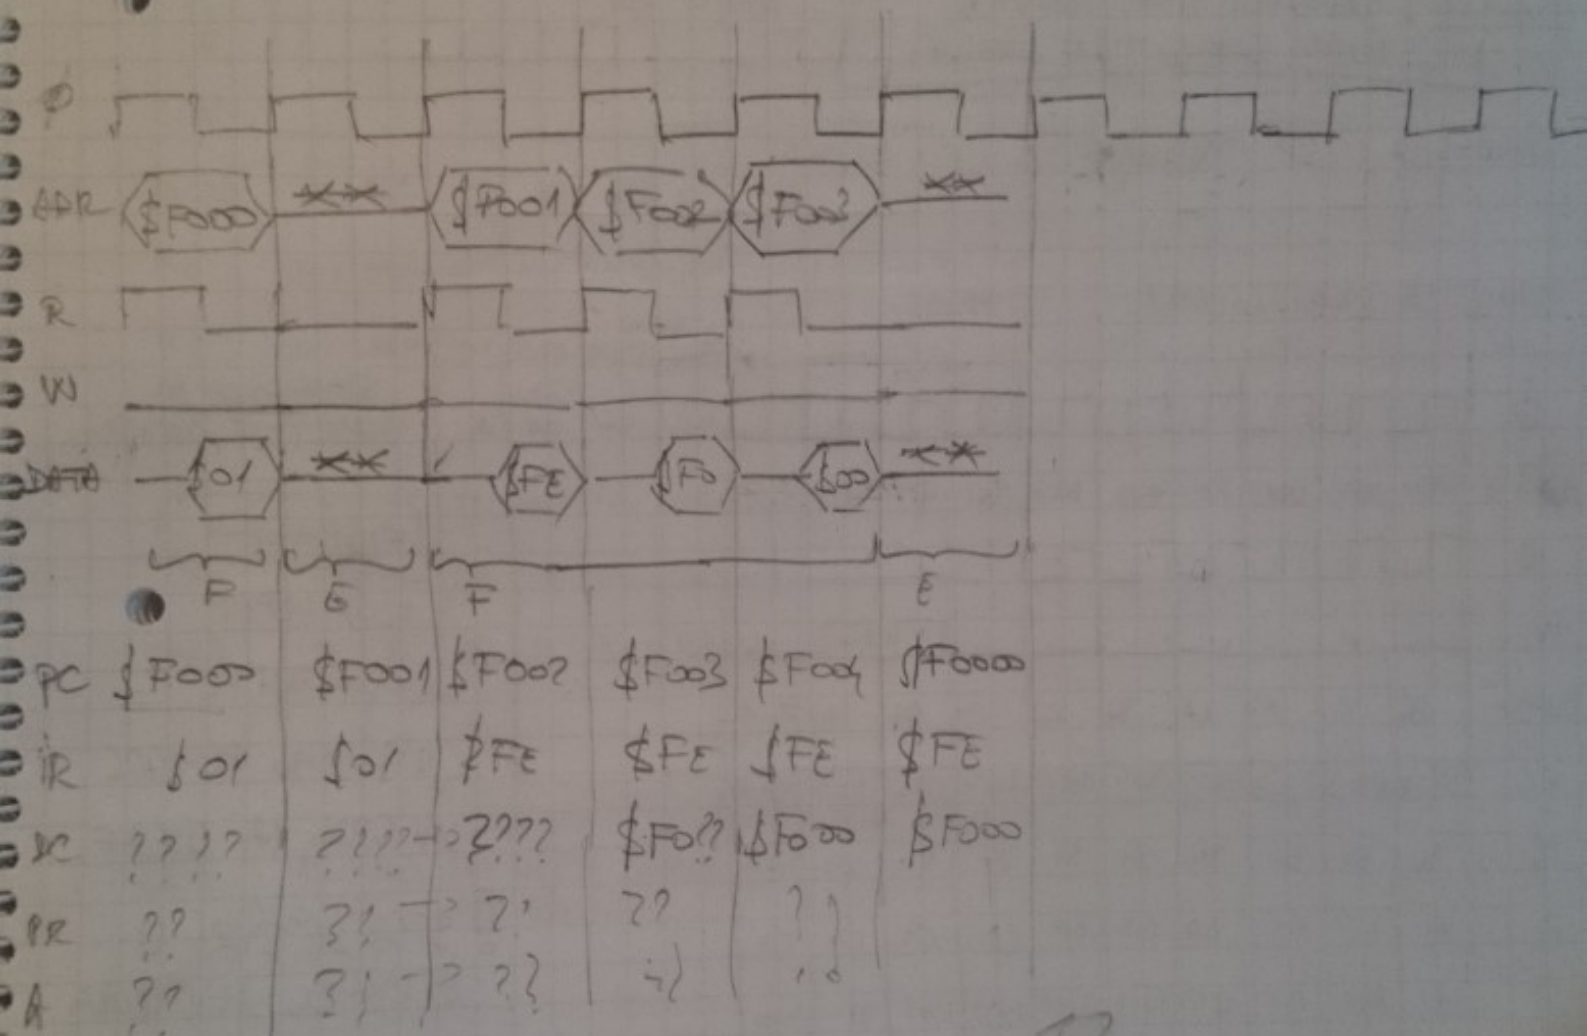 Φ
ADR $F000 ** $F001 $F002 $F003 **
R
W
DATA $01 ** $FE $F0 $00 **
F E F E
PC $F000 $F001 $F002 $F003 $F004 $F0000
IR $01 $01 $FE $FE $FE $FE
???? ???? ???? $F0?? $F000 $F000
?? ?? ?? ?? ??
A ?? ?? ??